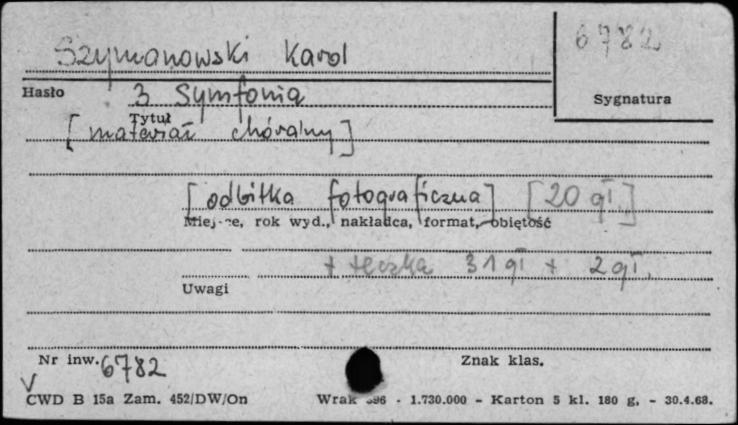 Szymanowski Karol
6782
Hasło
Sygnatura
3 Symfonia
Tytuł
[materiał chóralny]
[odbitka fotograficzna] [20 gł.]
Miejsce, rok wyd., nakładca, format, objętość
+ teczka 31 gł + 2 gł.
Uwagi
Nr inw. 6782
Znak klas.
V
CWD B 15a Zam. 452/DW/On
Wrak 396 - 1.730.000 - Karton 5 kl. 180 g. - 30.4.68.